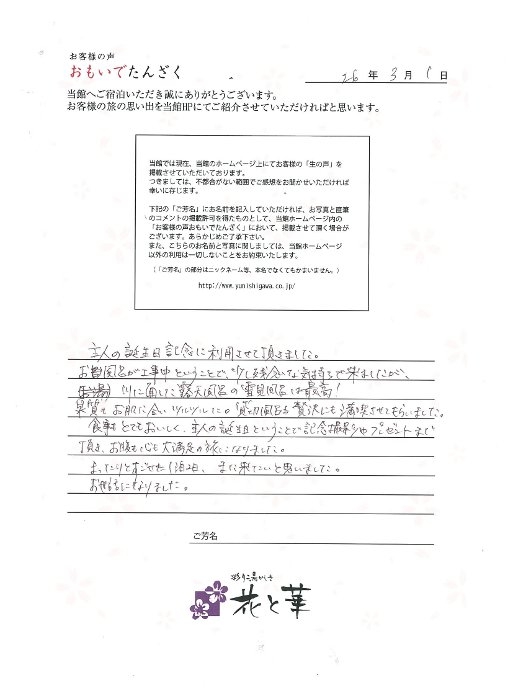 お客様の声
おもいでたんざく
26 年 3 月 1 日
当館へご宿泊いただき誠にありがとうございます。
お客様の旅の思い出を当館HPにてご紹介させていただければと思います。
当館では現在、当館のホームページ上にてお客様の「生の声」を
掲載させていただいております。
つきましては、不都合がない範囲でご感想をお聞かせいただければ
幸いに存じます。
下記の「ご芳名」にお名前を記入していただければ、お写真と直筆
のコメントの掲載許可を得たものとして、当館ホームページ内の
「お客様の声おもいでたんざく」において、掲載させて頂く場合が
ございます。あらかじめご了承下さい。
また、こちらのお名前と写真に関しましては、当館ホームページ
以外の利用は一切しないことをお約束いたします。
(「ご芳名」の部分はニックネーム等、本名でなくてもかまいません。)
http://www.yunishigawa.co.jp/
主人の誕生日記念に利用させて頂きました。
お風呂が工事中ということで、少し残念な気持ちで来ましたが、
川に面した露天風呂の雪見風呂は最高!
泉質もお肌に合いツルツルに。貸切風呂も贅沢にも満喫させてもらいました。
食事もとてもおいしく、主人の誕生日ということで記念撮影やプレゼントまで
頂き、お腹も心も大満足の旅になりました。
まったりとすごせた1泊2日、また来たいと思いました。
お世話になりました。
ご芳名
彩り湯かしき
花と華